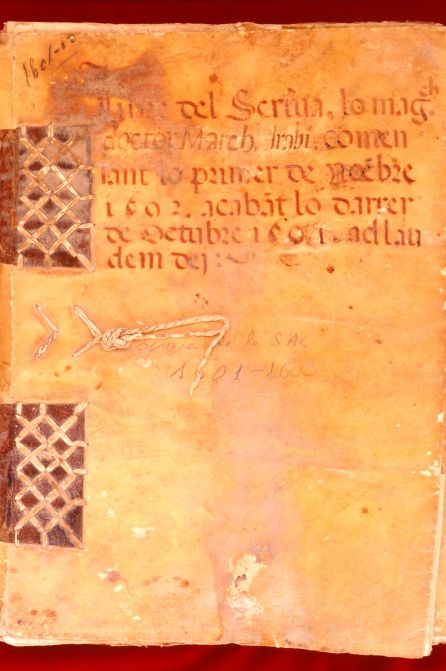 1601-02
Llibre del Scriua, lo mag.ch
doctor March, Arabi, comen
sant lo primer de Noēbre
1602. acabāt lo darrer
de Octubre 1601. ad lau
dem dei
de la SAL
1601-160